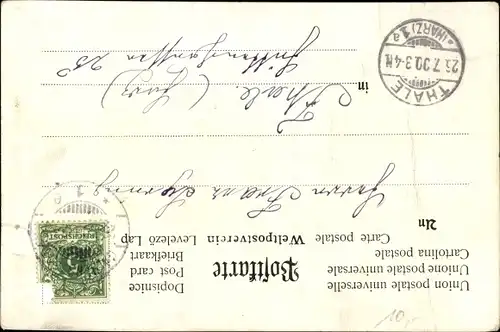 Union postale universelle
Unione postale universale
Cartolina postale
Carte postale
Weltpostverein
Levelező Lap
Dopisnice
Post card
Briefkaart
Postkarte
An
Herrn Franz
in Thale (Harz)
25
THALE
23.7.00.3-4N.
*(HARZ)1a
REICHSPOST
5
10,-